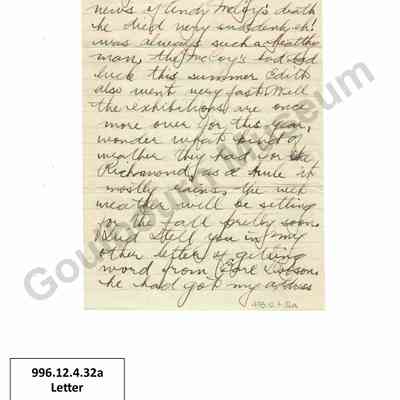 news of Andy McCoy's death
he died very suddenly eh!
was always such a healthy
man, the McCoy's had bad
luck this summer Edith
also went very fast. Well
the exhibitions are once
more over for this year,
wonder what kind of
weather they had for the
Richmond, as a rule it
mostly rains, the wet
weather will be setting
for the fall pretty soon.
Did I tell you in my
other letter of getting
word from Dobson.
he had got my address
996.12.4.32a
Goulbourn Museum
996.12.4.32a
Letter